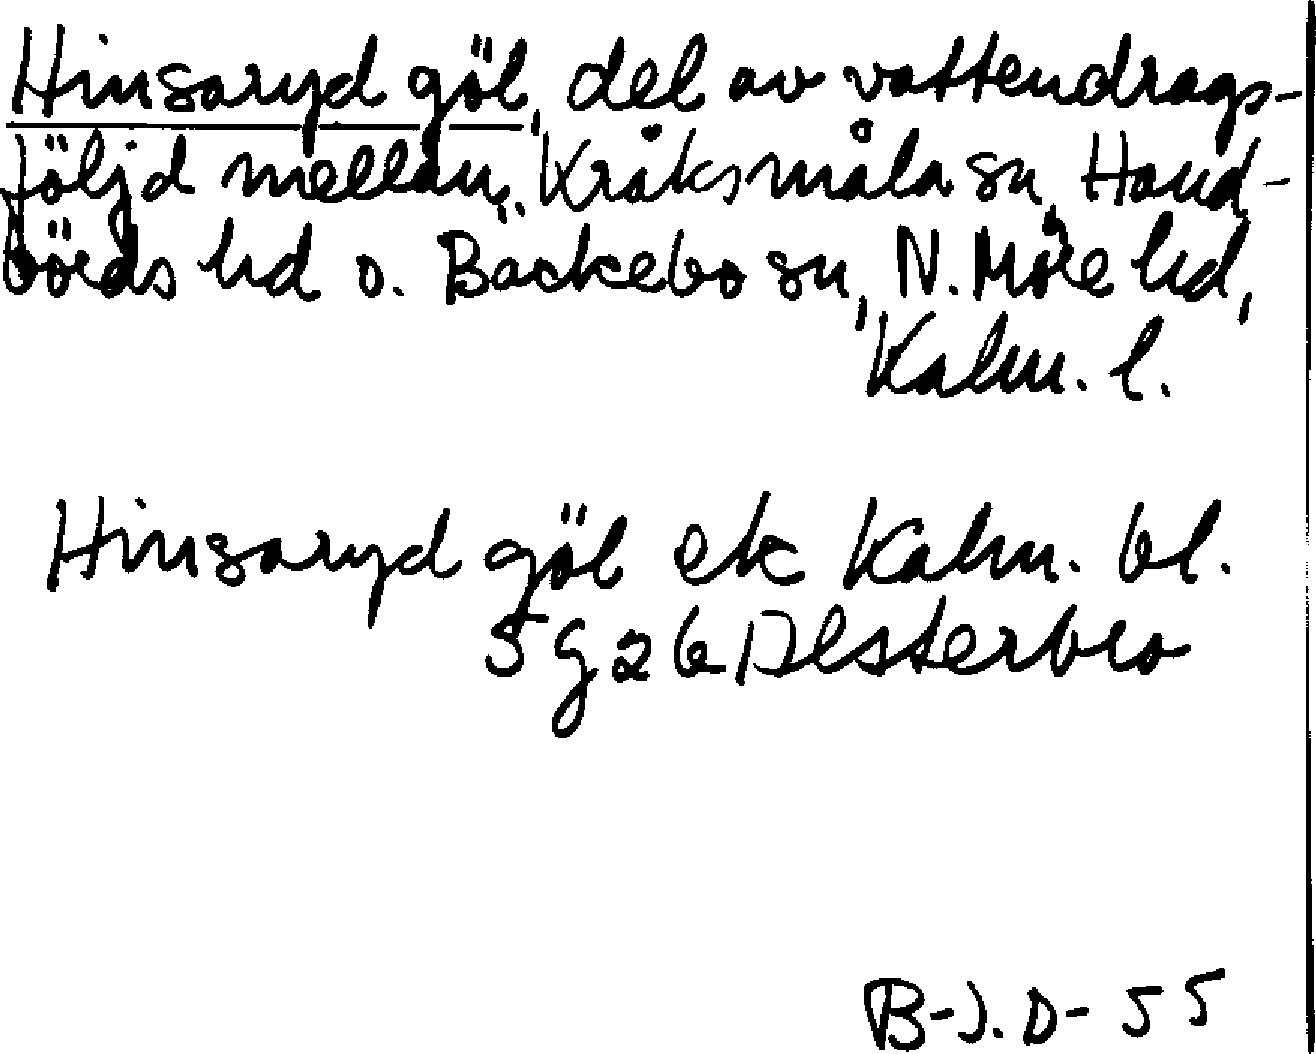 Hinsaryd göl, del av vattendrags-
följd mellan Kråksmåla sn, Hand-
börds hd o. Bäckebo sn, N. Möre hd,
Kalm. l.
Hinsaryd göl ek Kalm. bl.
5 g 26 Alsterbro
B-J. D- 55